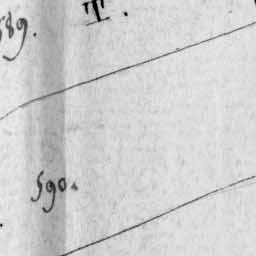 589. T.
590.